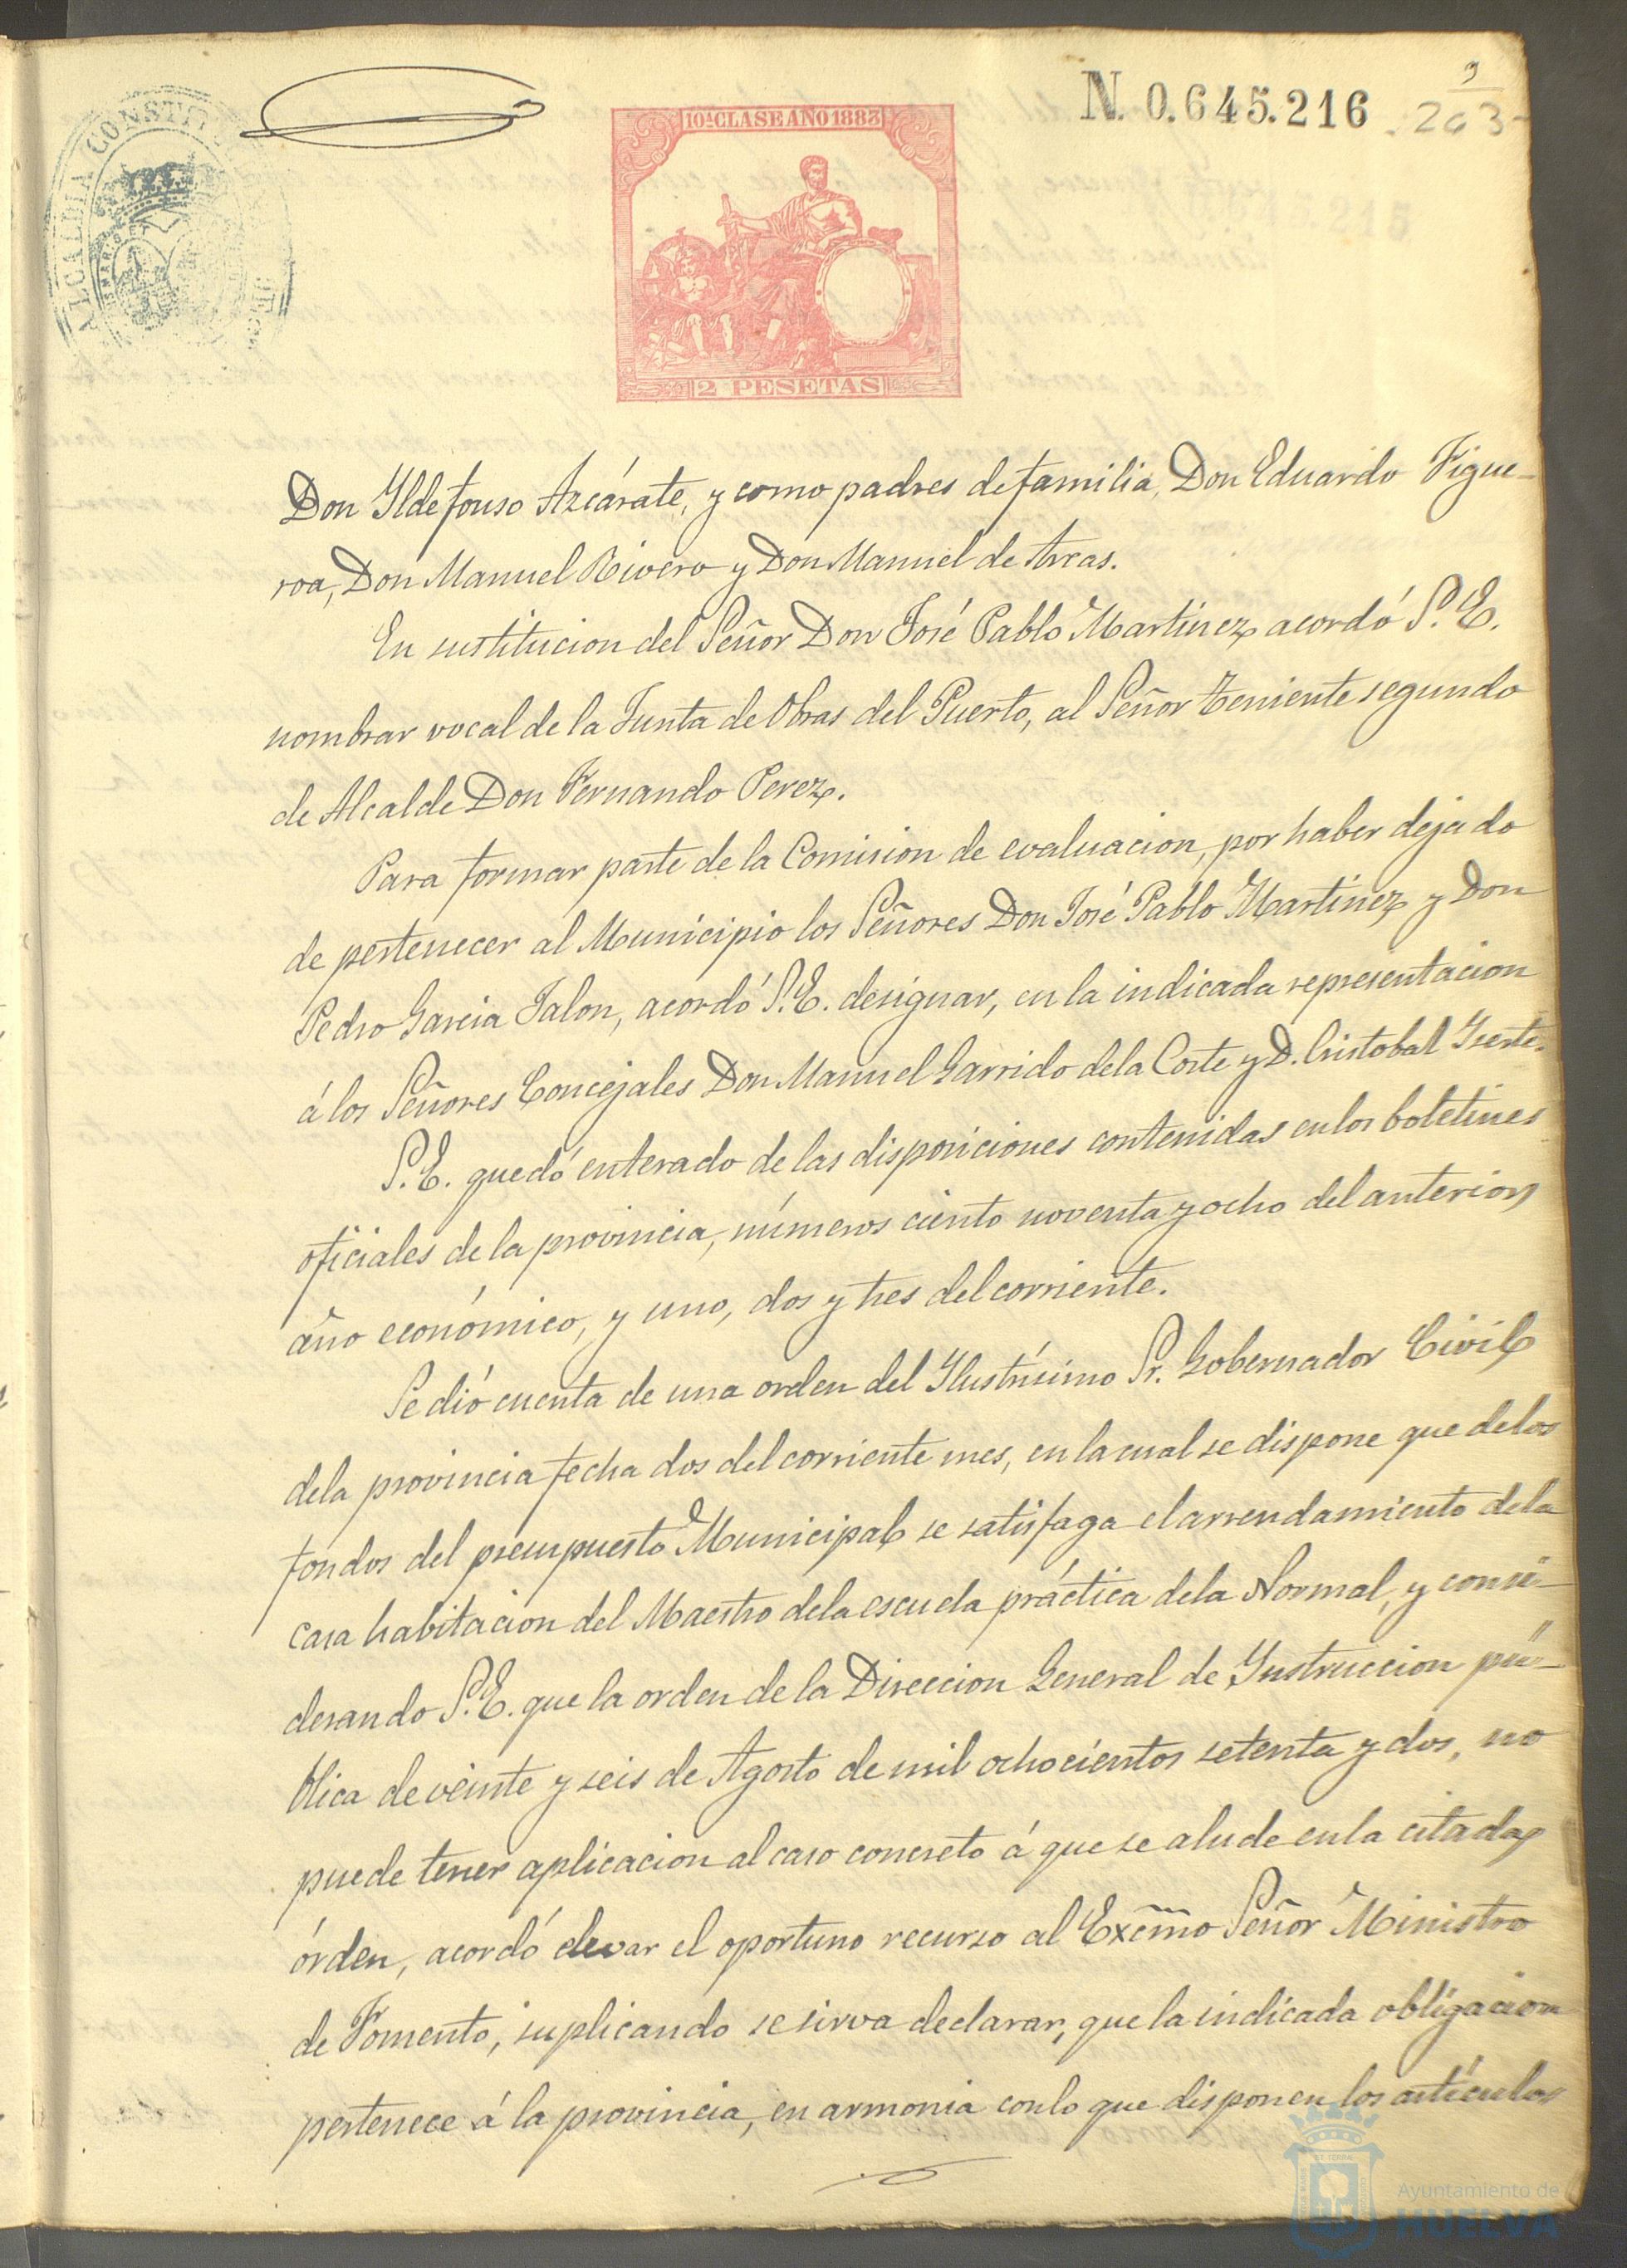 N. 0.645.216
9
203
ALCALDIA CONSTITU
10ª CLASE AÑO 1883
2 PESETAS
Don Yldefonso Azcárate, y como padres de familia, Don Eduardo Figue-
roa, Don Manuel Rivero y Don Manuel de Arcas.
En sustitucion del Señor Don José Pablo Martinez acordó S. E.
nombrar vocal de la Junta de Obras del Puerto, al Señor Teniente segundo
de Alcalde Don Fernando Perez.
Para formar parte de la Comision de evaluacion, por haber dejado
de pertenecer al Municipio los Señores Don José Pablo Martinez y Don
Pedro Garcia Jalon, acordó S. E. designar, en la indicada representacion
á los Señores Concejales Don Manuel Garrido de la Corte y D. Cristobal
S. E. quedó enterado de las disposiciones contenidas en los boletines
oficiales de la provincia, números ciento noventa y ocho del anterior
año económico, y uno, dos y tres del corriente.
Se dió cuenta de una orden del Ylustrísimo Sr. Gobernador Civil
de la provincia fecha dos del corriente mes, en la cual se dispone que de los
fondos del presupuesto Municipal se satisfaga el arrendamiento de la
casa habitacion del Maestro de la escuela práctica de la Normal, y consi-
derando S. E. que la orden de la Direccion General de Ynstruccion pú-
blica de veinte y seis de Agosto de mil ochocientos setenta y dos, no
puede tener aplicacion al caso concreto á que se alude en la citada
órden, acordó elevar el oportuno recurso al Excmo Señor Ministro
de Fomento, suplicando se sirva declarar, que la indicada obligacion
pertenece á la provincia, en armonia con lo que disponen los artículos
Ayuntamiento de
HUELVA